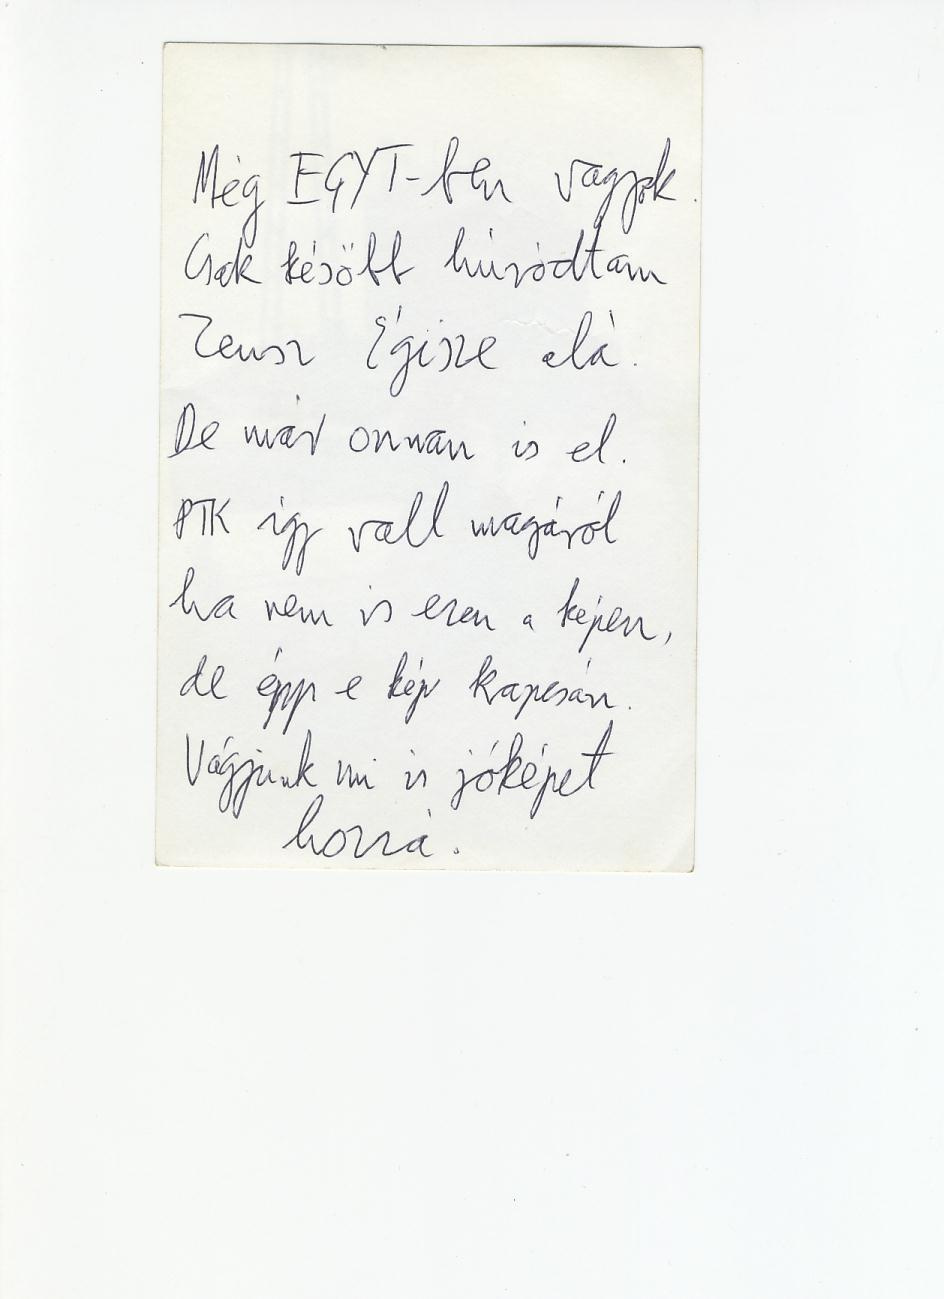 Még EGYT-ben vagyok.
Csak később húzódtam
Zeusz Égisze alá.
De már onnan is el.
PTK így vall magáról
ha nem is ezen a képen,
de épp e kép kapcsán.
Vágjunk mi is jóképet
hozzá.